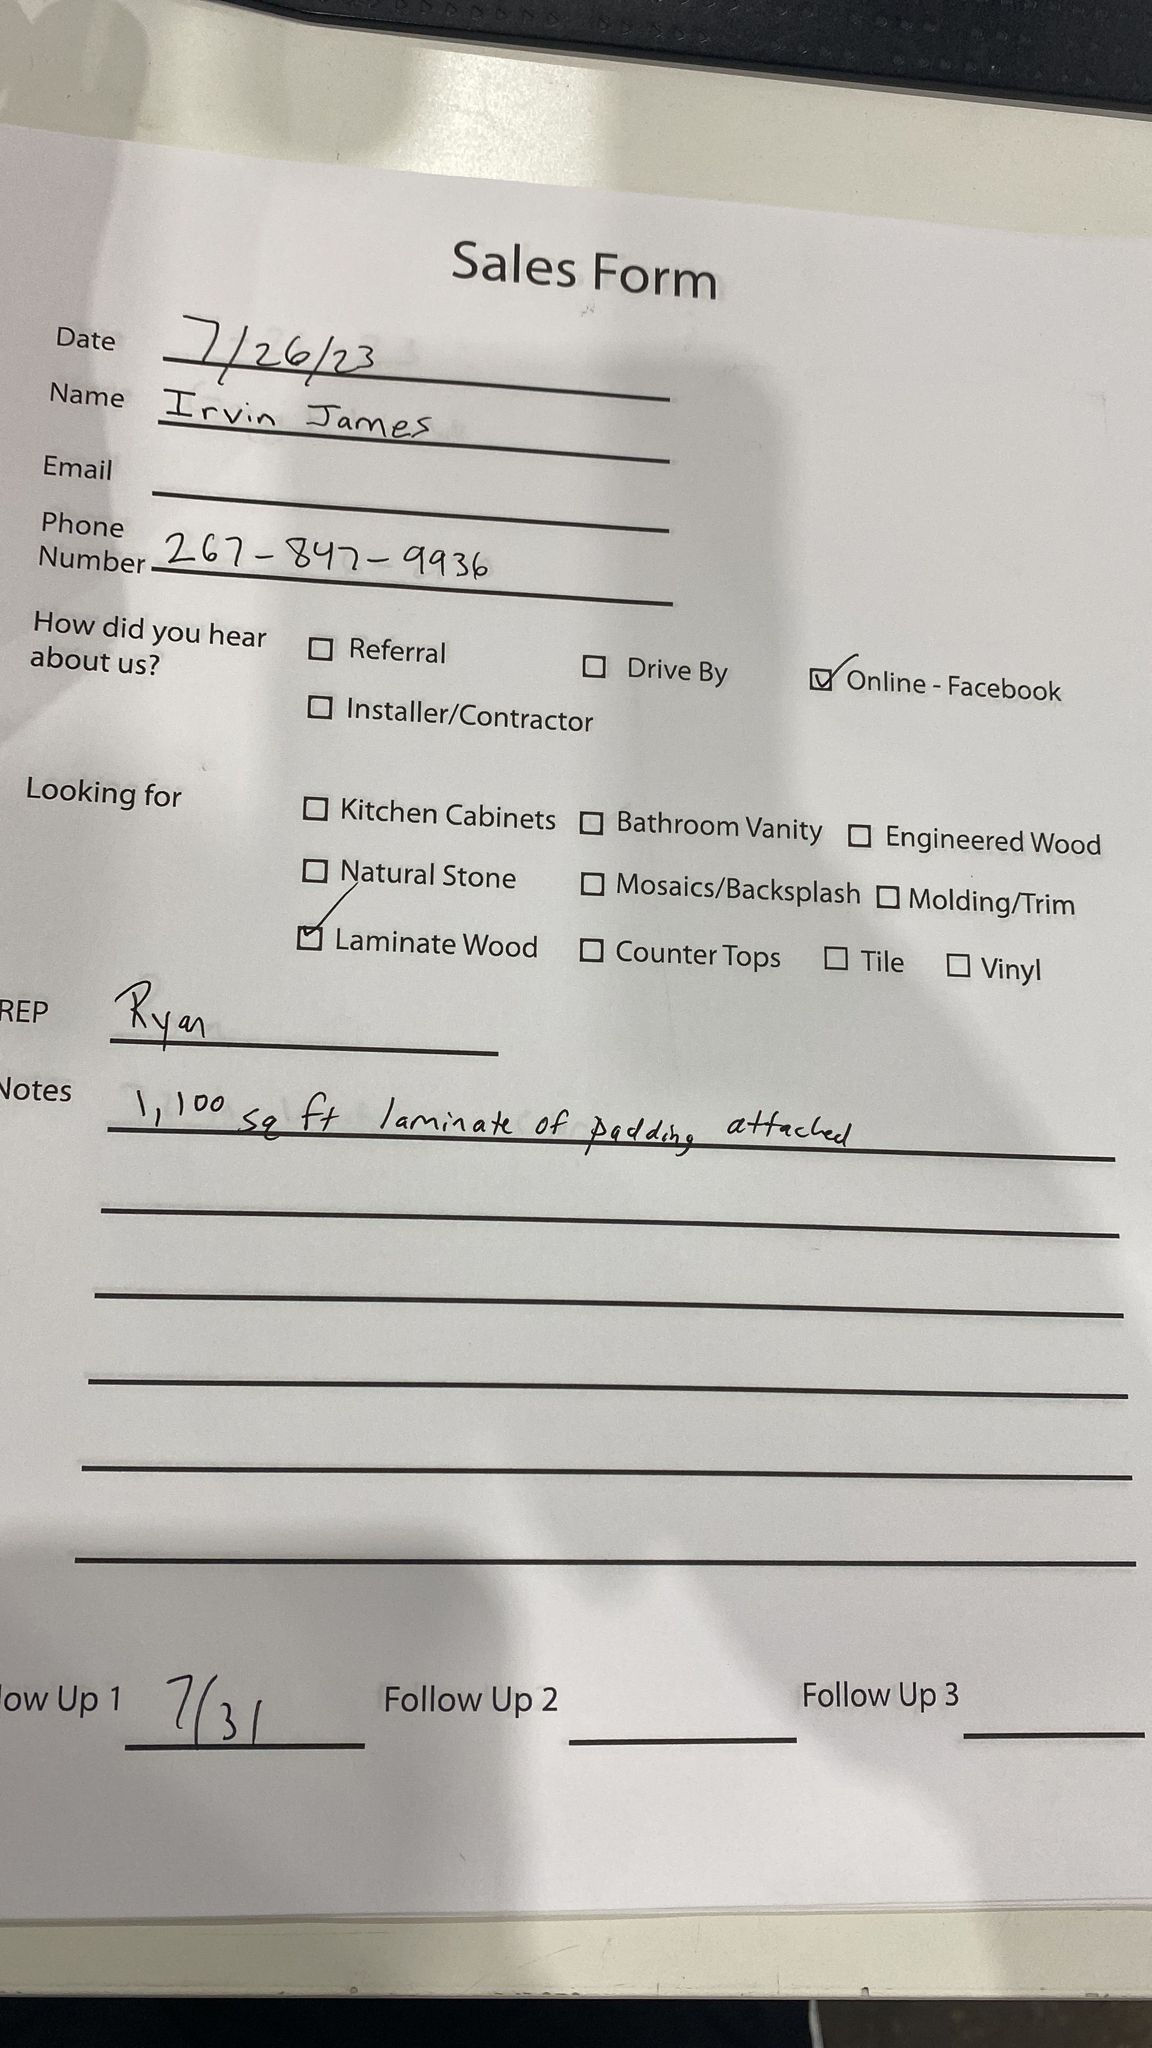 Sales Form
Date 7/26/23
Name Irvin James
Email
Phone
Number 267-847-9936
How did you hear
about us?
☐ Referral ☐ Drive By ☑ Online - Facebook
☐ Installer/Contractor
Looking for
☐ Kitchen Cabinets ☐ Bathroom Vanity ☐ Engineered Wood
☐ Natural Stone ☐ Mosaics/Backsplash ☐ Molding/Trim
☑ Laminate Wood ☐ Counter Tops ☐ Tile ☐ Vinyl
REP Ryan
Notes 1,100 sq ft laminate of padding attached
low Up 1 7/31 Follow Up 2 Follow Up 3